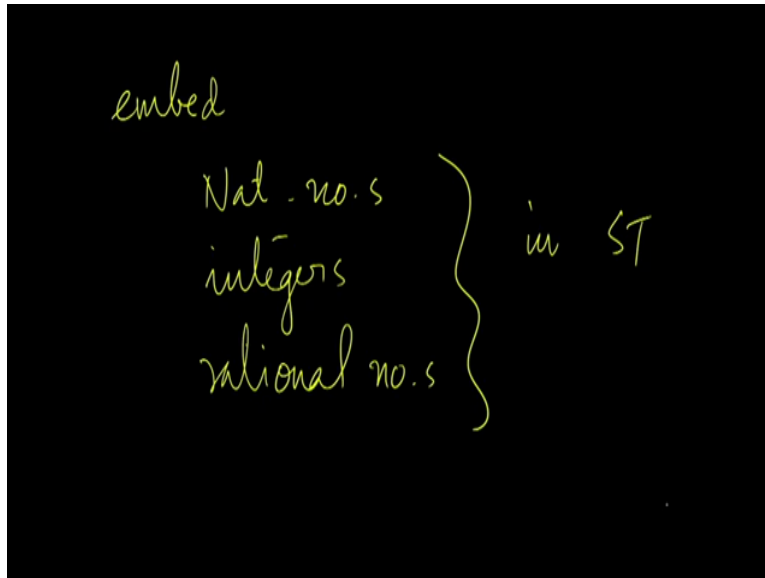 embed
Nat. no.s
integers
rational no.s
in ST